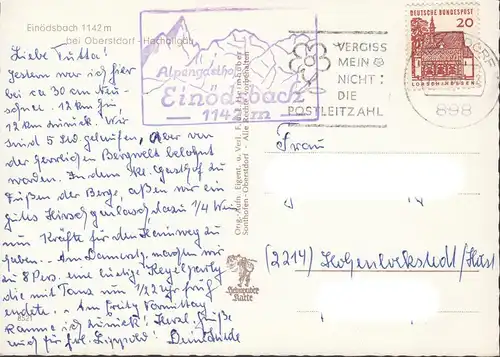 Einödsbach 1142 m
bei Oberstdorf - Hochallgäu
Liebe Tutta!
Gestern war ich hier
bei ca 30 cm Neu-
schnee. 12 km hin
12 km zurück! Wir
sind 5 Std. gelaufen, Aber von
der herrlichen Bergwelt belohnt
worden. In dem kl. Gasthof zu
Füßen der Berge, aßen wir ein
gutes Hirschgulasch, dazu 1/4 Wein
um Kräfte für den Heimweg zu
haben. Am Damerst. machten wir
zu 8 Pers. eine lustige Kegelparty
die mit Tanz um 1/2 2 Uhr früh
endete. Am Freitag Vormittag
komme ich zurück! Herzl. Grüße
auch für Frl. Lippold! Deine Hilde
8321
Alpengasthof
Einödsbach
1142 m
VERGISS
MEIN
NICHT
DIE
POSTLEITZAHL
DEUTSCHE BUNDESPOST
20
LORSCH/HESSEN
898
Orig.-Aufn. Eigent. u. Verl. F.
Sonthofen - Oberstdorf - Alle Rechte vorbehalten
Heimhuber
Karte
Frau
(2214) Hohenlockstedt/Holst